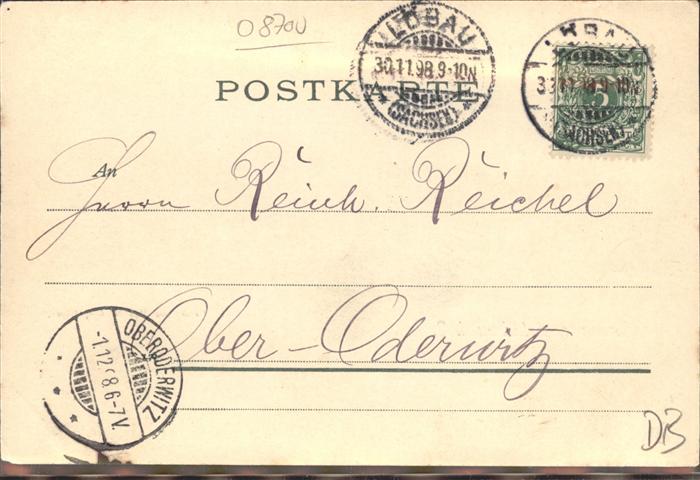 O 8700
LÖBAU
30.11.98.9-10N.
(SACHSEN)
LÖBAU
30.11.98.9-10N.
(SACHSEN)
5
POSTKARTE
An
Herrn Reinh. Reichel
Ober-Oderwitz
OBERODERWITZ
-1.12.98.6-7V.
DB